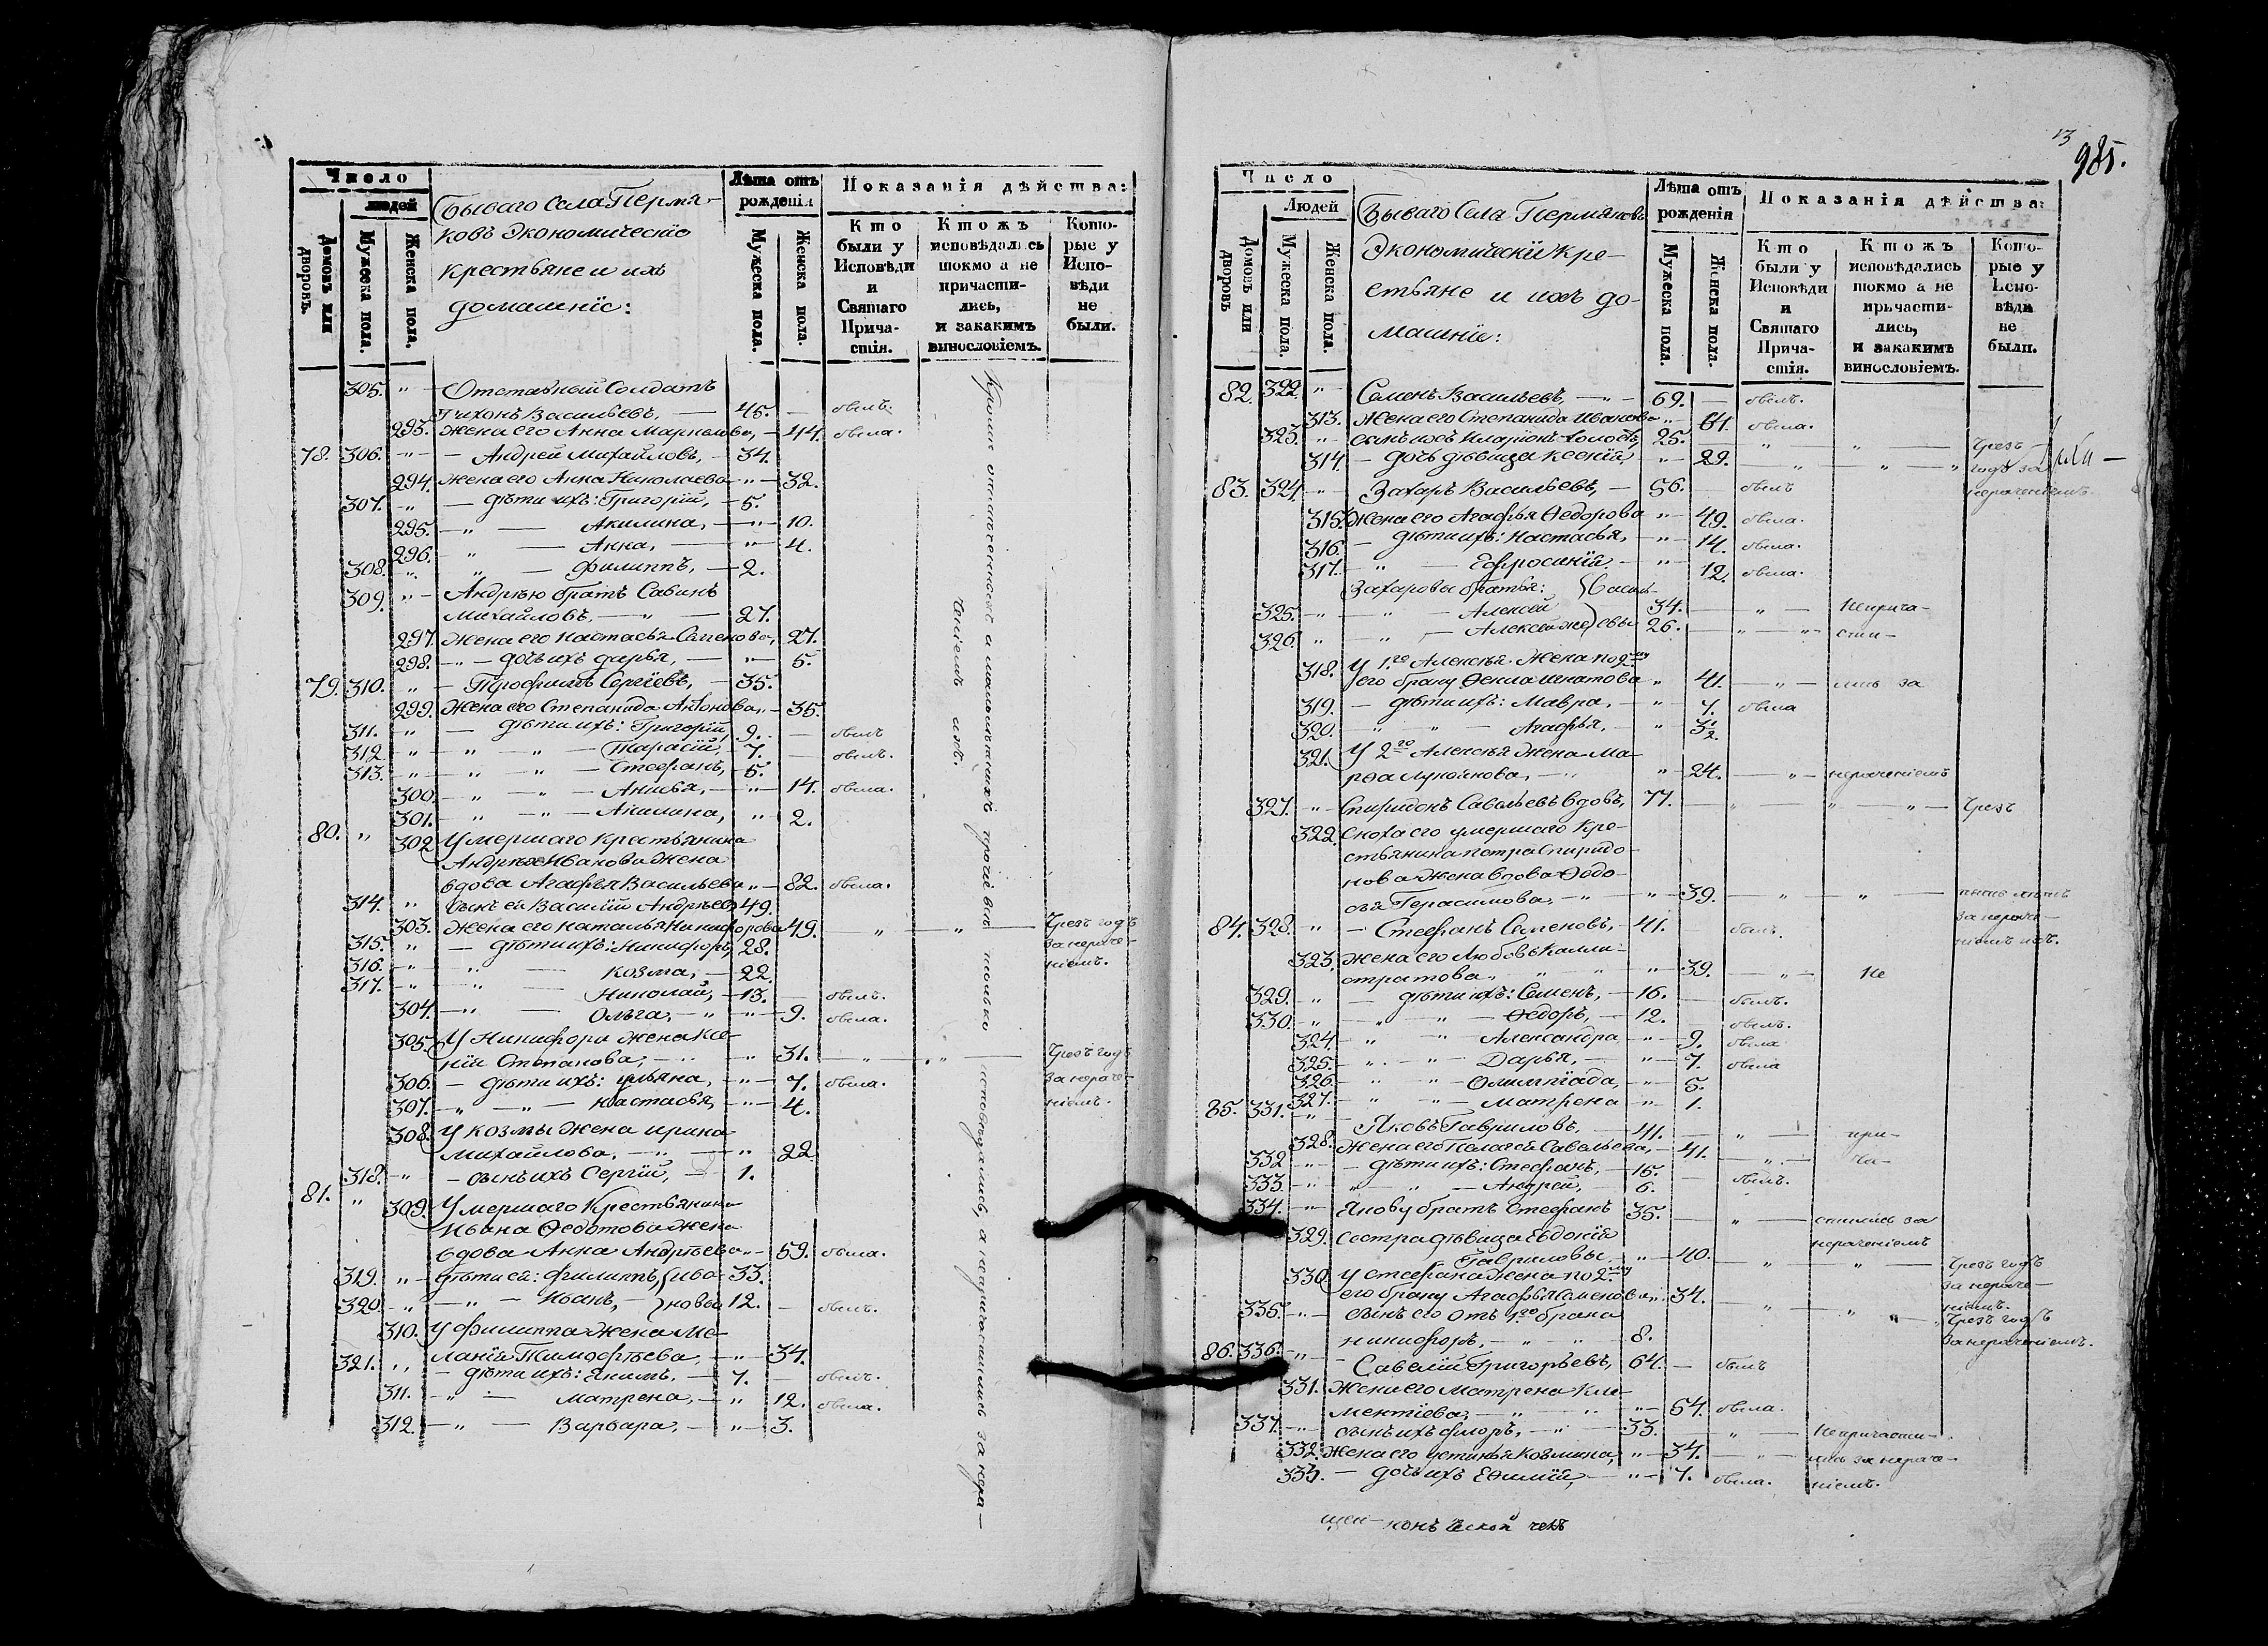 Число
людей
Домовъ или дворовъ.
Мужеска пола.
Женска пола.
Бываго Села Пермя-
ковъ Экономическiе
крестьяне и ихъ
домашнiе:
Лѣта отъ рожденiя
Мужеска пола.
Женска пола.
Показанiя дѣйства:
Кто были у Исповѣди и Святаго Прича-стiя.
Ктожъ исповѣдались токмо а не причасти-лись, и закакимъ винословiемъ.
Кото-рые у Испо-вѣди не были.
305. " Отставный Солдатъ
Тихонъ Васильевъ, 45. — былъ.
293. Жена его Анна Маркелова, 44. была.
78. 306. " Андрей Михайловъ, 34.
294. Жена его Анна Николаева " 32.
307. " дѣти ихъ: Григорiй, 5.
295. " Акилина, " 10.
296. " Анна, " 4.
308. " " Филиппъ, 2.
309. " Андрѣю братъ Савинъ
Михайловъ, " 27.
297. Жена его Настасья Семенова, 27.
298. " дочь ихъ Дарья, " 5.
79. 310. " Трофимъ Сергiевъ, 35.
299. Жена его Степанида Антонова, 35.
311. " дѣти ихъ: Григорiй, 9. — былъ
312. " " " Тарасiй, 7. — былъ.
313. " " " Стефанъ, 5.
300. " " Анисья, " 14. была.
301. " " Акилина, " 2.
80. " 302. Умершаго Крестьянина
Андрѣя Иванова Жена
вдова Агафья Васильева " 82. была.
314. " Сынъ ея Василiй Андрѣевъ 49.
303. Жена его Наталья Никифорова 49. " " Чрезъ годъ
315. " дѣти ихъ: Никифоръ, 28. за нераче-
316. " " Козма, 22. нiемъ.
317. " " Николай, 13. — былъ.
304. " Ольга, " " 9. была.
305. У Никифора жена Ксе-
нiя Степанова, " 31. " " Чрезъ годъ
306. дѣти ихъ: Ульяна, " 7. была. за нераче-
307. " " Настасья, " 4. нiемъ.
308. У Козмы жена Ирина
Михайлова, " " 22.
318. " сынъ ихъ Сергiй, 1.
81. " 309. Умершаго Крестьянина
Ивана Федотова жена
вдова Анна Андрѣева " 59. была.
319. " дѣти ея: Филиппъ, Ива- 33.
320. " " Иванъ, новы 12. — былъ.
310. У Филиппа жена Ме-
ланiя Тимофѣева, " 34.
321. " дѣти ихъ: Якимъ, 7. — былъ.
311. " Матрена, " 12. была.
312. " Варвара, " 3.
Кромѣ отмеченныхъ и малолѣтнихъ прочiе всѣ только исповѣдались, а непричастились за нера-
ченiемъ ихъ.
13
985.
Число
Людей
Домовъ или дворовъ
Мужеска пола.
Женска пола.
Бываго Села Пермяковъ
Экономическiи кре-
стьяне и ихъ до-
машнiе:
Лѣта отъ рожденiя
Мужеска пола.
Женска пола.
Показанiя дѣйства:
Кто были у Исповѣди и Святаго Прича-стiя.
Ктожъ исповѣдались токмо а не причасти-лись, и закакимъ винословiемъ.
Кото-рые у Испо-вѣди не были.
82. 322. " Семенъ Васильевъ, " 69. — былъ.
313. Жена его Степанида Иванова " 61. была.
323. " сынъ ихъ Иларiонъ холостъ, 25. " " Чрезъ
314. дочь дѣвица Ксенiя, " 29. " " " годъ за
83. 324. " Захаръ Васильевъ, 56. былъ нераченiемъ.
315. Жена его Агафья Ѳедорова " 49. была.
316. дѣти ихъ: Настасья, " 14. была.
317. " Ефросинiя, " 12. была.
Захаровы братья: Василь-
325. " " Алексѣй 34. " Неприча-
326. " " Алексѣй же евы 26. " " сти-
318. У 1го Алексѣя Жена по 2му
его браку Ѳекла Игнатова " 41. " лись за
319. дѣти ихъ: Мавра, " 7. была
320. " " Агафья, " 3½.
321. У 2го Алексѣя жена Ма-
рѳа Лукоянова, " 24. " нераченiемъ
327. " Спиридонъ Савельевъ вдовъ, 77. " " " Чрезъ
322. Сноха его умершаго Кре-
стьянина Петра Спиридо-
нова жена вдова Ѳедо-
сья Герасимова, " " 39. " " лѣтъ
84. 328. " Стефанъ Семеновъ, 41. былъ. за нераче-
нiемъ ихъ.
323. жена его Любовь Кали-
стратова, " " " 39. " Не
329. " дѣти ихъ: Семенъ, 16. — былъ.
330. " " " Ѳедоръ, 12. былъ.
324. " " Александра " 9. была
325. " " Дарья, " 7. была
326. " " Олимпiада, " 5.
327. " " Матрена " 1.
85. 331. " Яковъ Гавриловъ, 41. " при-
328. Жена его Пелагея Савельева, 41. " ча-
332. " дѣти ихъ: Стефанъ, 15. — былъ.
333. " " " Андрей, 6.
334. " Якову братъ Стефанъ 35. " стились за
329. сестра дѣвица Евдокiя нераченiемъ
Гавриловы " 40. " " Чрезъ годъ
330. У Стефана жена по 2му за нераче-
его браку Агафья Семенова 34. " " " нiемъ.
335. " сынъ его отъ 1го брака " Чрезъ годъ
Никифоръ, " " 8. за нераченiемъ.
86. 336. " Савелiй Григорьевъ, 64. — былъ
331. Жена его Матрена Кли-
ментiева, " " " 64. была.
337. " сынъ ихъ Флоръ, " 33. " Непричасти-
332. Жена его Устинья Козмина, " 34. " лись за нераче-
333. дочь ихъ Евѳимiя, " 7. была. нiемъ.